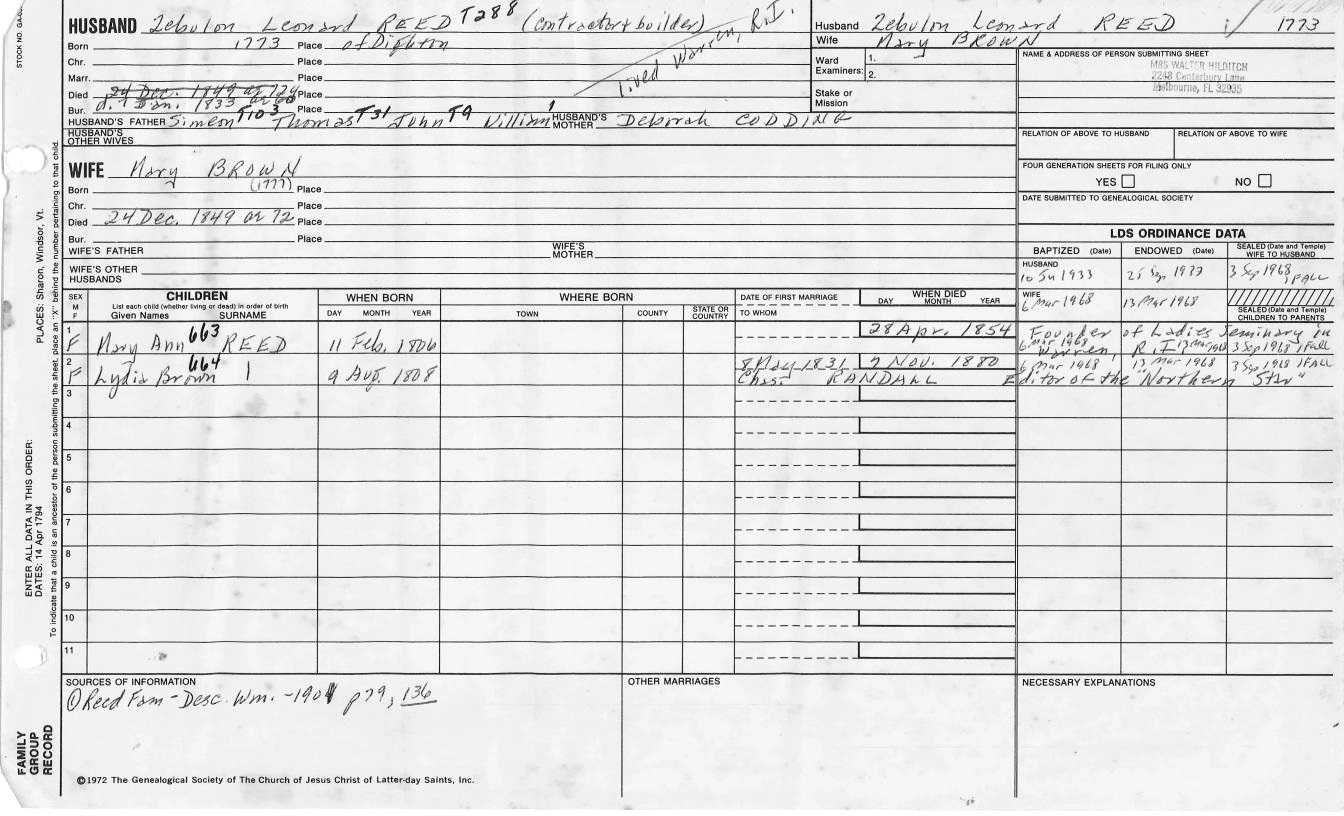 STOCK NO. GA-
HUSBAND Zebulon Leonard REED T288 (contractor & builder)
Born 1773 Place of Dighton
Chr. Place
Marr. Place
lived Warren, R.I.
Died 24 Dec. 1849 at 72y Place
Bur. d. 1 Jan. 1833 Place
HUSBAND'S FATHER Simeon T103 Thomas T31 John T9 William 1 HUSBAND'S MOTHER Deborah CODDING
HUSBAND'S OTHER WIVES
WIFE Mary BROWN
Born (1777) Place
Chr. Place
Died 24 Dec. 1849 at 72 Place
Bur. Place
WIFE'S FATHER WIFE'S MOTHER
WIFE'S OTHER HUSBANDS
Husband Zebulon Leonard REED 1773
Wife Mary BROWN
Ward Examiners: 1.
2.
Stake or Mission
NAME & ADDRESS OF PERSON SUBMITTING SHEET
MRS WALTER HILDITCH
2248 Canterbury Lane
Melbourne, FL 32935
RELATION OF ABOVE TO HUSBAND RELATION OF ABOVE TO WIFE
FOUR GENERATION SHEETS FOR FILING ONLY
YES NO
DATE SUBMITTED TO GENEALOGICAL SOCIETY
LDS ORDINANCE DATA
BAPTIZED (Date) ENDOWED (Date) SEALED (Date and Temple) WIFE TO HUSBAND
HUSBAND
1933 3 Sep 1968 1FALL
WIFE
6 Mar 1968 13 Mar 1968
SEALED (Date & Temple) CHILDREN TO PARENTS
SEX M F
CHILDREN
List each child (whether living or dead) in order of birth
Given Names SURNAME
WHEN BORN
DAY MONTH YEAR
WHERE BORN
TOWN COUNTY STATE OR COUNTRY
DATE OF FIRST MARRIAGE
TO WHOM
WHEN DIED
DAY MONTH YEAR
1 F Mary Ann 663 REED 11 Feb. 1806 28 Apr. 1854 Founder of Ladies Seminary in
Warren, R.I.
6 Mar 1968 13 Mar 1968 3 Sep 1968 1FALL
2 F Lydia Brown 664 9 Aug. 1808 8 May 1831 9 Nov. 1880 6 Mar 1968 13 Mar 1968 3 Sep 1968 1FALL
Chas. RANDALL Editor of the "Northern Star"
3
4
5
6
7
8
9
10
11
SOURCES OF INFORMATION
① Reed Fam - Desc. Wm. - 1901 p79, 136
OTHER MARRIAGES
NECESSARY EXPLANATIONS
©1972 The Genealogical Society of The Church of Jesus Christ of Latter-day Saints, Inc.
PLACES: Sharon, Windsor, Vt.
ENTER ALL DATA IN THIS ORDER:
DATES: 14 Apr 1794
To indicate that a child is an ancestor of the person submitting the sheet, place an "X" behind the number pertaining to that child.
FAMILY GROUP RECORD